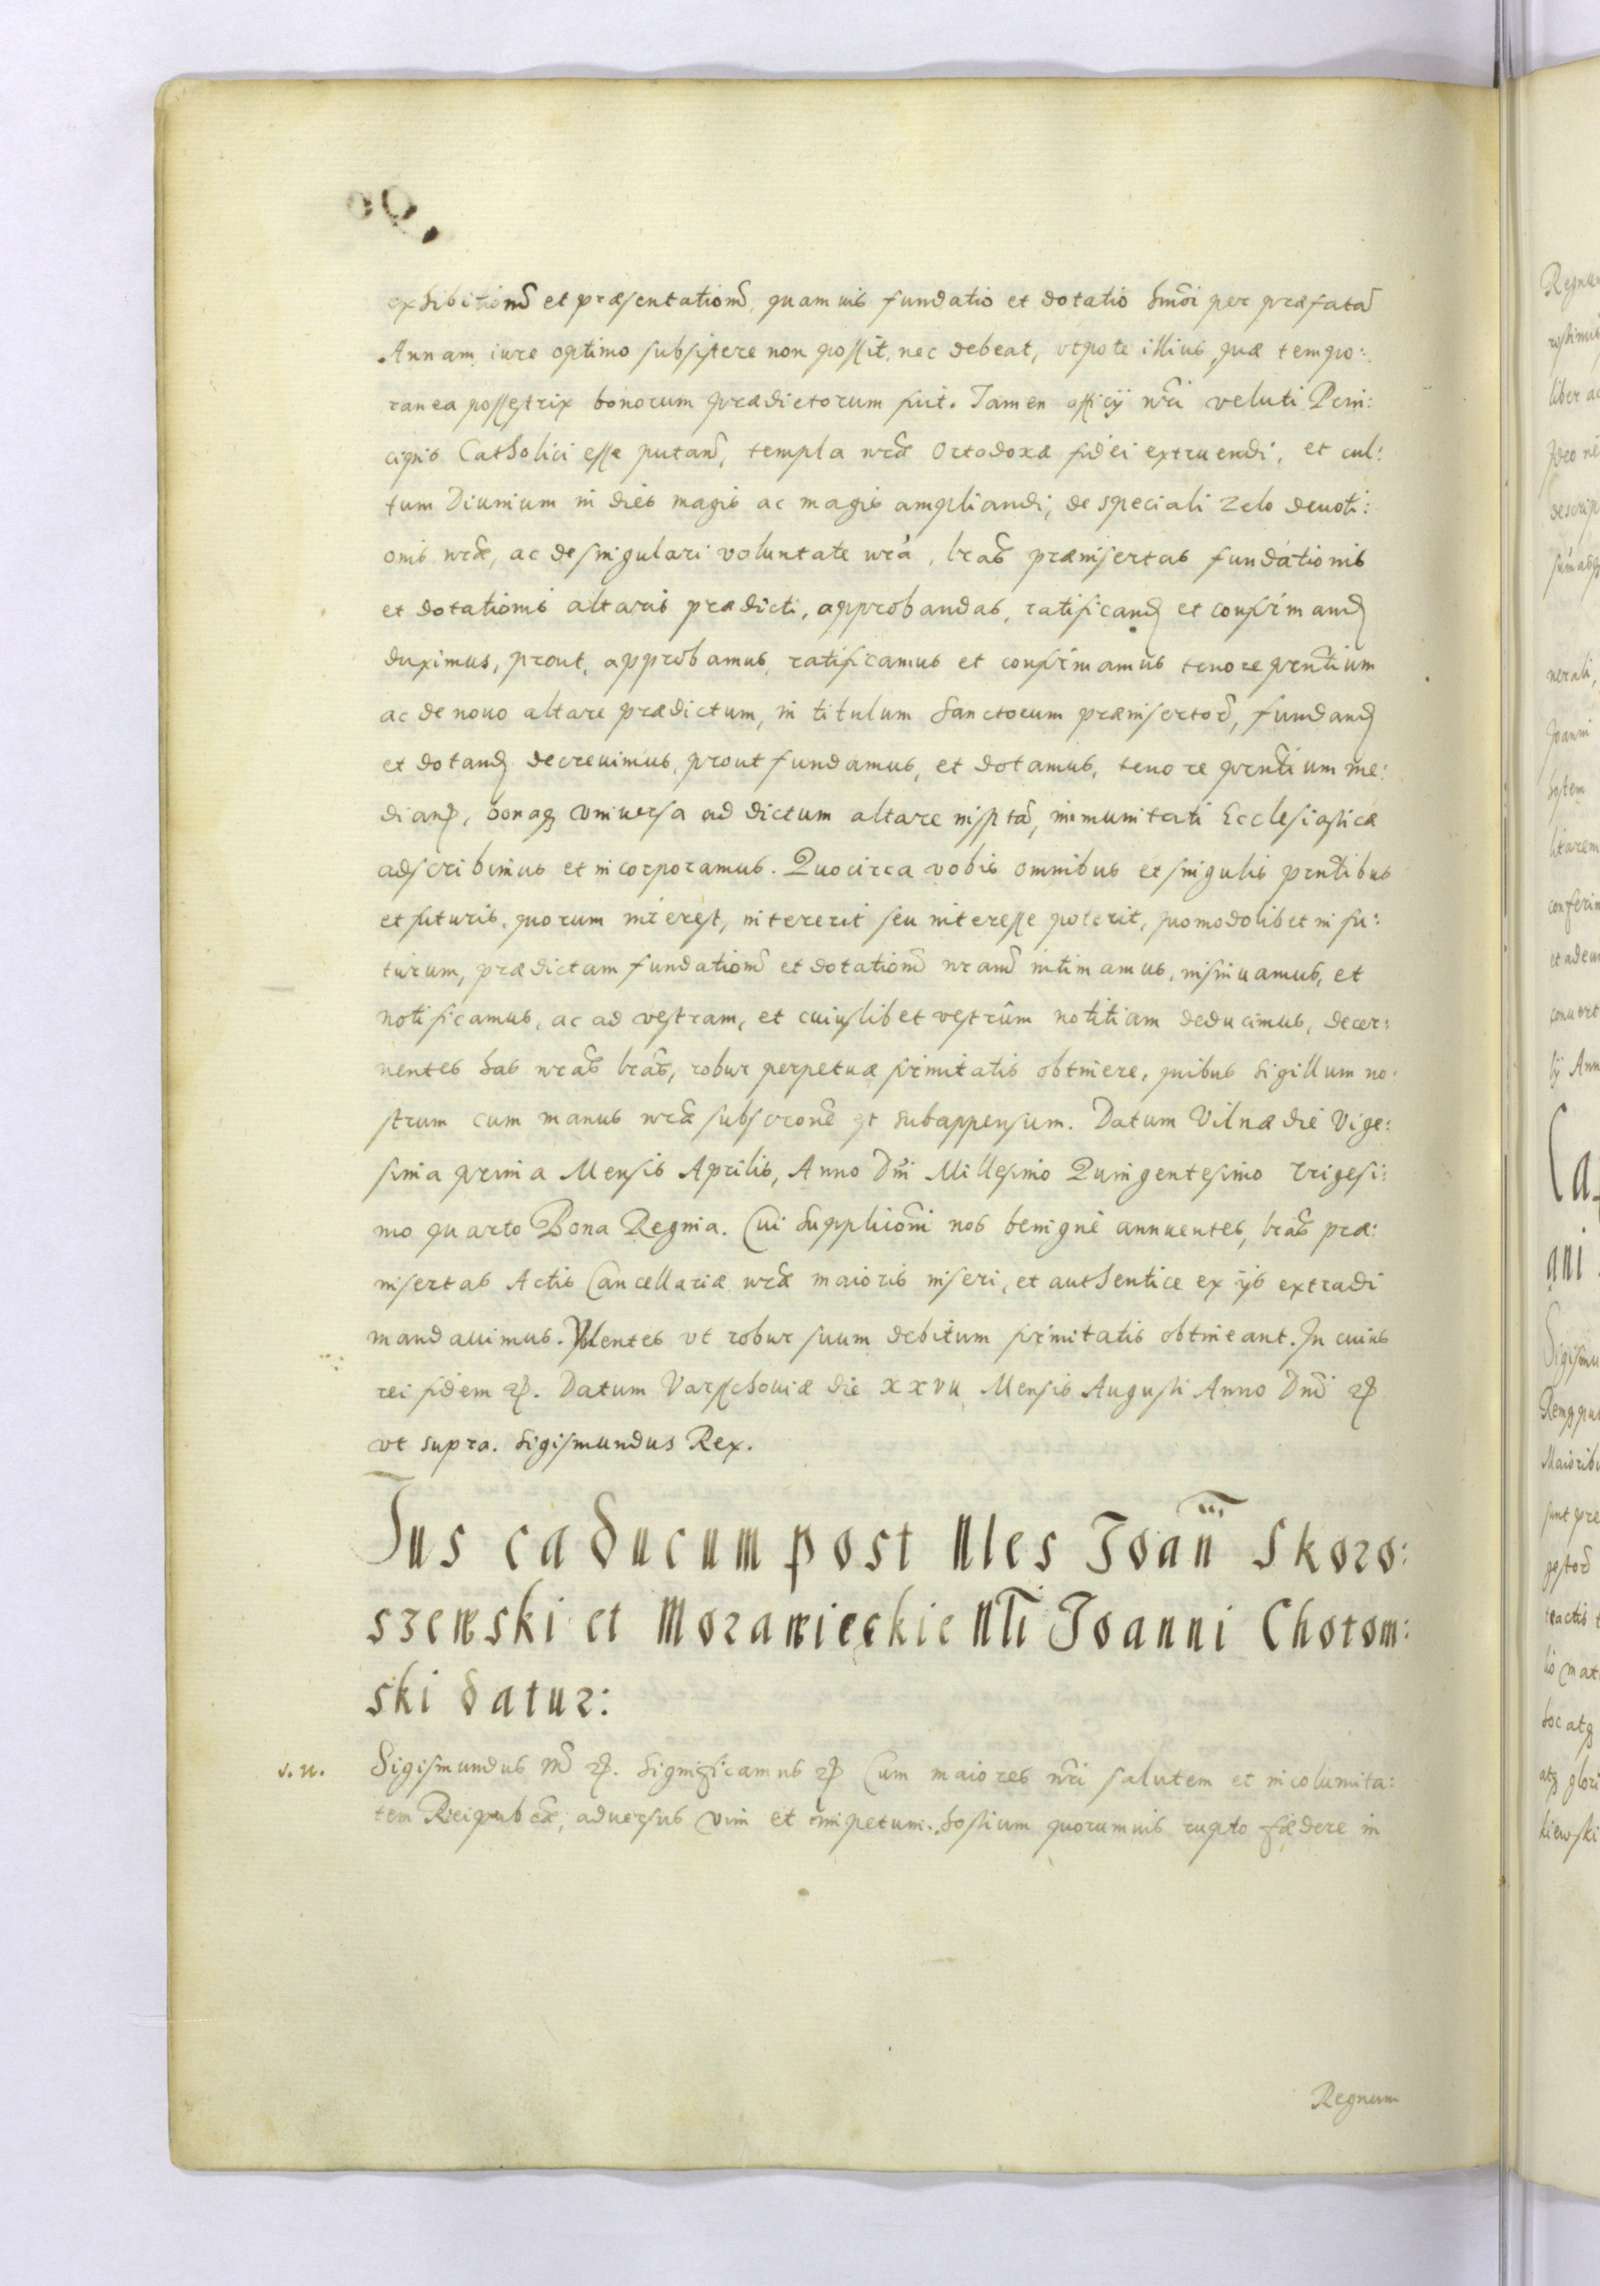 exhibitionē et præsentationē, quamuis fundatio et dotatio hmōi per præfatā
Annam iure optimo subsistere non possit, nec debeat, vtpote illius, quæ tempo:
ranea possestrix bonorum prædictorum fuit. Tamen officij nr̃i veluti Prin:
cipis Catholici esse putan̄, templa nr̃æ Ortodoxæ fidei extruendi, et cul:
tum Diuinum in dies magis ac magis ampliandi, de speciali zelo deuoti:
onis nr̃æ, ac de singulari voluntate nr̃a, lr̃as præinsertas fundationis
et dotationis altaris prædicti, approbandas, ratificand et confirmand
duximus, prout, approbamus, ratificamus et confirmamus tenore prñtium
ac de nouo altare prædictum, in titulum Sanctorum præinsertor̃, fundand
et dotand decreuimus, prout fundamus, et dotamus, tenore prñtium me:
dian, bonaq universa ad dictum altare insptā, immunitati Ecclesiasticæ
adscribimus et incorporamus. Quocirca vobis omnibus et singulis prñtibus
et futuris, quorum interest, intererit seu interesse poterit, quomodolibet in fu:
turum, prædictam fundationē et dotationē nram̃ intimamus, insinuamus, et
notificamus, ac ad vestram, et cuiuslibet vestrûm notitiam deducimus, decer:
nentes has nr̃as lr̃as, robur perpetuæ firmitatis obtinere, quibus Sigillum no:
strum cum manus nr̃æ subscr̃one est subappensum. Datum Vilnæ die Vige:
sima prima Mensis Aprilis, Anno Dñi Millesimo Quingentesimo trigesi:
mo quarto Bona Regina. Cui Supplicõni nos benignè annuentes, lr̃as præ:
insertas Actis Cancellariæ nr̃æ maioris inseri, et authentice ex ijs extradi
mandauimus. Volentes vt robur suum debitum firmitatis obtineant. In cuius
rei fidem etc. Datum Varschouiæ die XXVII Mensis Augusti Anno Dñi etc
vt supra. Sigismundus Rex.
Jus caducum post Nles Joañ Skoro:
szewski et Morawieckie Nli Joanni Chotom:
ski datur:
S. n. Sigismundus 3 etc. Significamus etc Cum maiores nr̃i salutem et incolumita:
tem Reipubcæ, aduersus vim et impetum hostium quorumuis rupto fœdere in
Regnum